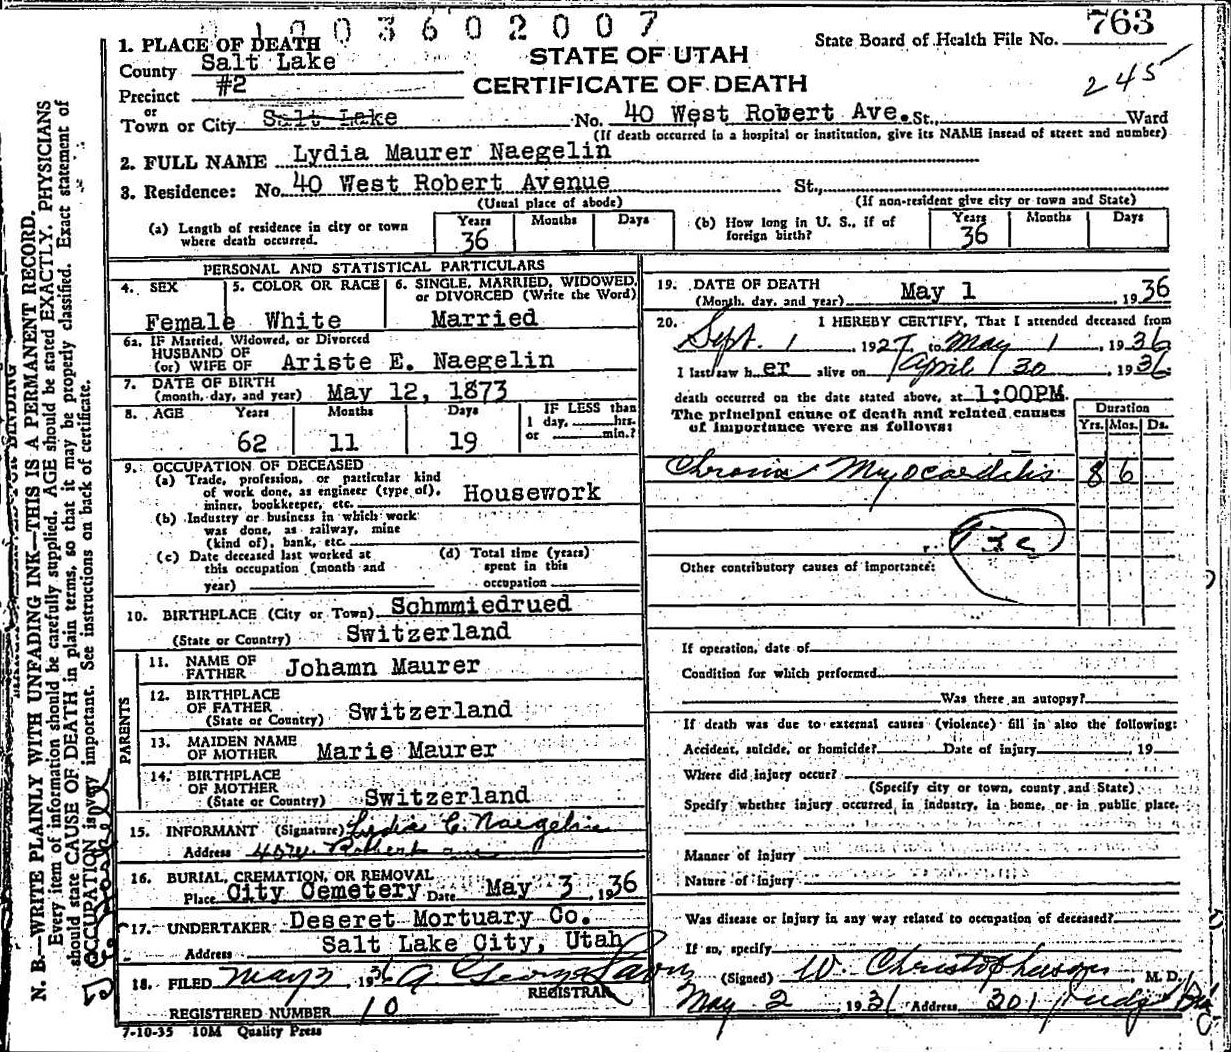 1003602007
763
State Board of Health File No.
245
STATE OF UTAH
CERTIFICATE OF DEATH
1. PLACE OF DEATH
County Salt Lake
Precinct #2
or
Town or City Salt Lake No. 40 West Robert Ave. St., Ward
(If death occurred in a hospital or institution, give its NAME instead of street and number)
2. FULL NAME Lydia Maurer Naegelin
3. Residence: No. 40 West Robert Avenue St.,
(Usual place of abode) (If non-resident give city or town and State)
(a) Length of residence in city or town where death occurred. Years 36 Months Days
(b) How long in U. S., if of foreign birth? Years 36 Months Days
PERSONAL AND STATISTICAL PARTICULARS
4. SEX Female
5. COLOR OR RACE White
6. SINGLE, MARRIED, WIDOWED, or DIVORCED (Write the Word) Married
6a. IF Married, Widowed, or Divorced
HUSBAND OF
(or) WIFE OF Ariste E. Naegelin
7. DATE OF BIRTH
(month, day, and year) May 12, 1873
8. AGE Years 62 Months 11 Days 19
IF LESS than
1 day, hrs.
or min.?
9. OCCUPATION OF DECEASED
(a) Trade, profession, or particular kind
of work done, as engineer (type of),
miner, bookkeeper, etc. Housework
(b) Industry or business in which work
was done, as railway, mine
(kind of), bank, etc.
(c) Date deceased last worked at
this occupation (month and
year)
(d) Total time (years)
spent in this
occupation
10. BIRTHPLACE (City or Town) Schmmiedrued
(State or Country) Switzerland
PARENTS
11. NAME OF
FATHER Johamn Maurer
12. BIRTHPLACE
OF FATHER
(State or Country) Switzerland
13. MAIDEN NAME
OF MOTHER Marie Maurer
14. BIRTHPLACE
OF MOTHER
(State or Country) Switzerland
15. INFORMANT (Signature) Lydia E. Naegelin
Address 40 W. Robert ave
16. BURIAL, CREMATION, OR REMOVAL
Place City Cemetery Date May 3, 1936
17. UNDERTAKER Deseret Mortuary Co.
Address Salt Lake City, Utah
18. FILED May 3 1936
REGISTRAR
REGISTERED NUMBER 10
7-10-35 10M Quality Press
19. DATE OF DEATH
(Month, day, and year) May 1, 1936
20. I HEREBY CERTIFY, That I attended deceased from
Sept. 1, 1927, to May 1, 1936
I last saw her alive on April 30, 1936
death occurred on the date stated above, at 1:00PM.
The principal cause of death and related causes
of importance were as follows:
Duration
Yrs. Mos. Ds.
Chronic Myocarditis 8 6
93c
Other contributory causes of importance:
If operation, date of
Condition for which performed
Was there an autopsy?
If death was due to external causes (violence) fill in also the following:
Accident, suicide, or homicide? Date of injury , 19
Where did injury occur?
(Specify city or town, county and State)
Specify whether injury occurred in industry, in home, or in public place,
Manner of injury
Nature of injury
Was disease or injury in any way related to occupation of deceased?
If so, specify
(Signed) W. Christopherson, M. D.
May 2, 1931 Address 301 Judge Bldg
N. B.—WRITE PLAINLY WITH UNFADING INK—THIS IS A PERMANENT RECORD.
Every item of information should be carefully supplied. AGE should be stated EXACTLY. PHYSICIANS
should state CAUSE OF DEATH in plain terms, so that it may be properly classified. Exact statement of
OCCUPATION is very important. See instructions on back of certificate.